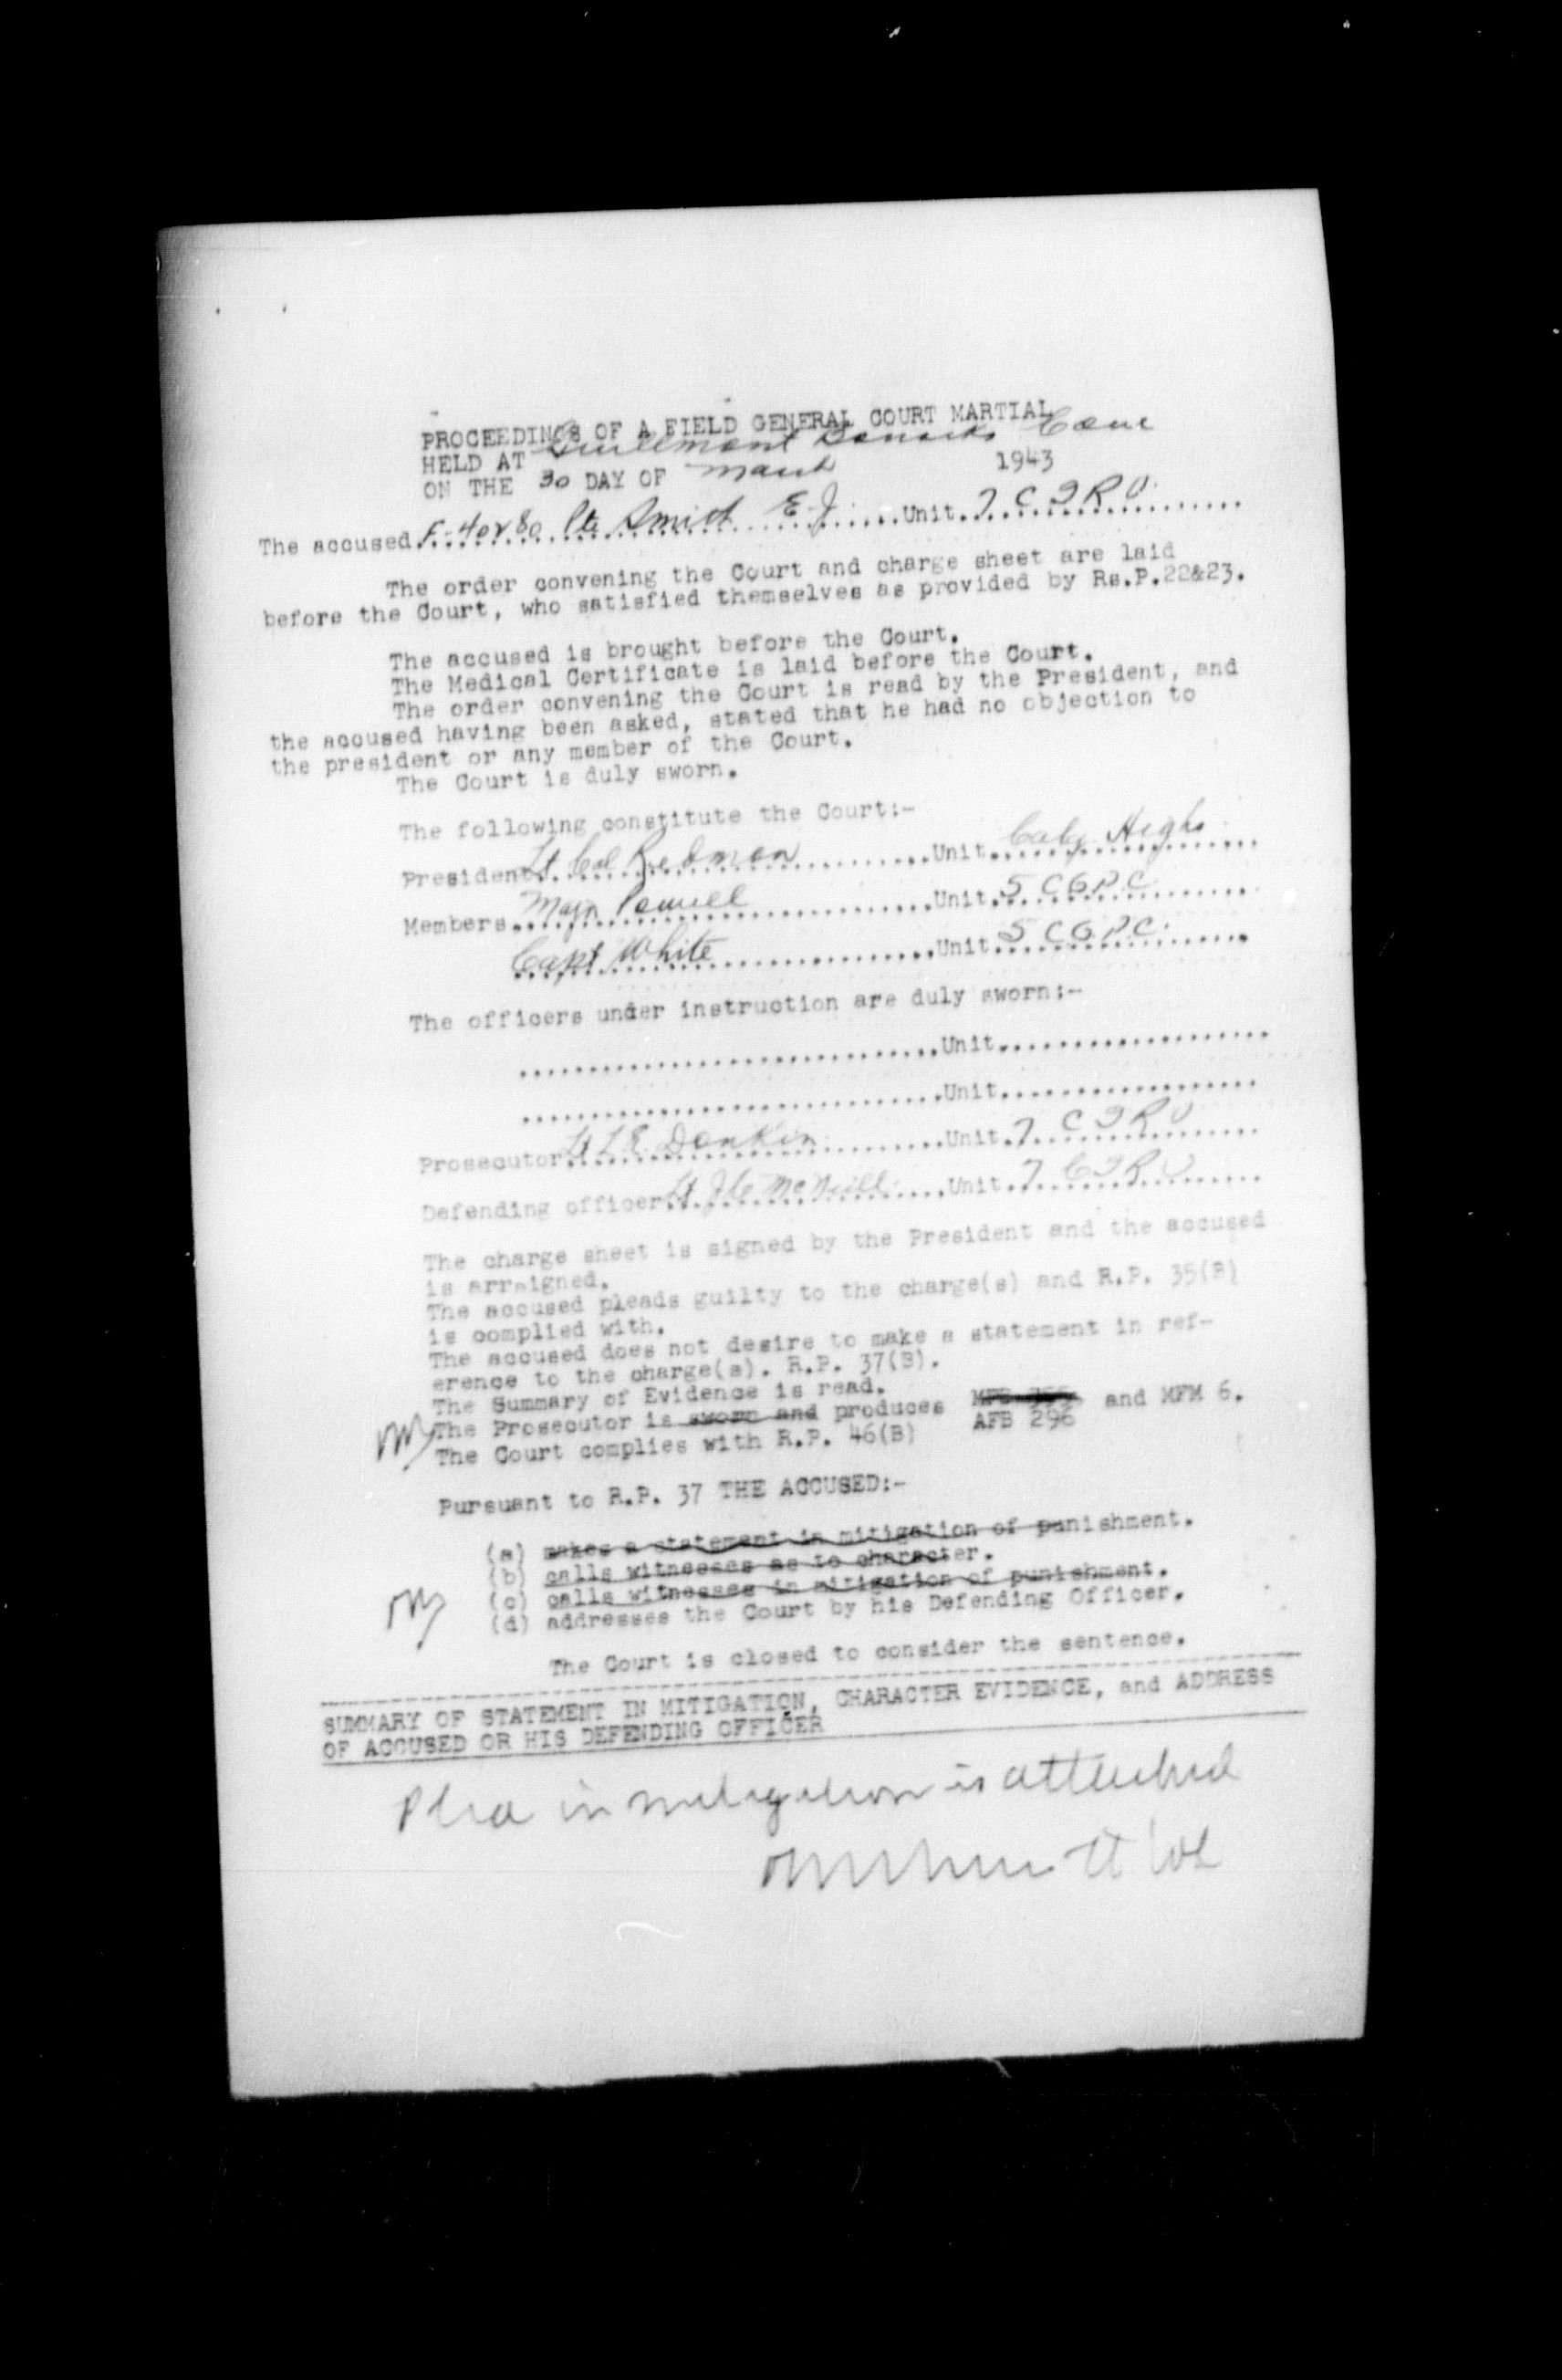 PROCEEDINGS OF A FIELD GENERAL COURT MARTIAL
HELD AT Guillemont Barracks
ON THE 30 DAY OF March 1943
The accused F-40280 Pte Smith E J Unit 7 C I R U
The order convening the Court and charge sheet are laid
before the Court, who satisfied themselves as provided by Rs.P.22&23.
The accused is brought before the Court.
The Medical Certificate is laid before the Court.
The order convening the Court is read by the President, and
the accused having been asked, stated that he had no objection to
the president or any member of the Court.
The Court is duly sworn.
The following constitute the Court:-
President Lt Col Redmon Unit Calg. Highs
Members Major Powell Unit 5 C G R C
Capt White Unit 5 C G R C
The officers under instruction are duly sworn:-
Unit
Unit
Prosecutor Lt L E Donkin Unit 7 C I R U
Defending officer Lt J C McNeill Unit 7 C I R U
The charge sheet is signed by the President and the accused
is arraigned.
The accused pleads guilty to the charge(s) and R.P. 35(B)
is complied with.
The accused does not desire to make a statement in ref-
erence to the charge(s). R.P. 37(B).
The Summary of Evidence is read.
The Prosecutor is sworn and produces AFB 296 and MFM 6.
The Court complies with R.P. 46(B)
Pursuant to R.P. 37 THE ACCUSED:-
(a) makes a statement in mitigation of punishment.
(b) calls witnesses as to character.
(c) calls witnesses in mitigation of punishment.
(d) addresses the Court by his Defending Officer.
The Court is closed to consider the sentence.
SUMMARY OF STATEMENT IN MITIGATION, CHARACTER EVIDENCE, and ADDRESS
OF ACCUSED OR HIS DEFENDING OFFICER
Plea in mitigation is attached
Lt Col